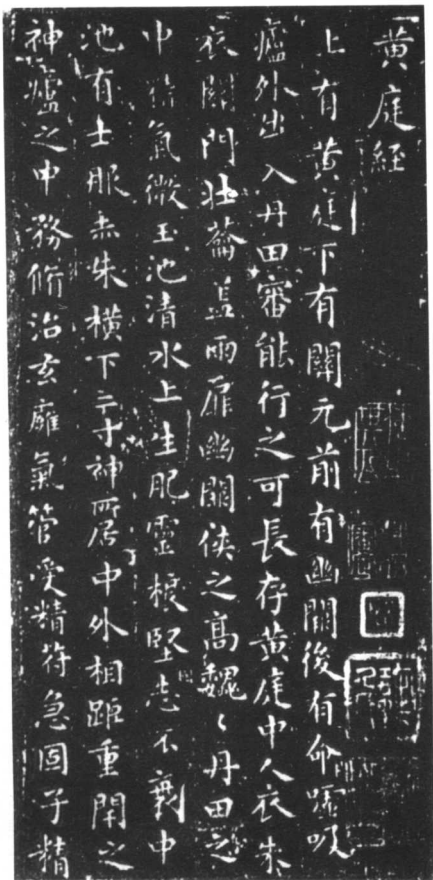 黄庭經
上有黄庭下有關元前有幽關後有命噓吸
廬外出入丹田審能行之可長存黄庭中人衣朱
衣關門壯蘥蓋兩扉幽關俠之高魏〻丹田之
中精氣微玉池清水上生肥靈根堅志不衰中
池有士服赤朱橫下三寸神所居中外相距重閇之
神廬之中務脩治玄廱氣管受精符急固子精